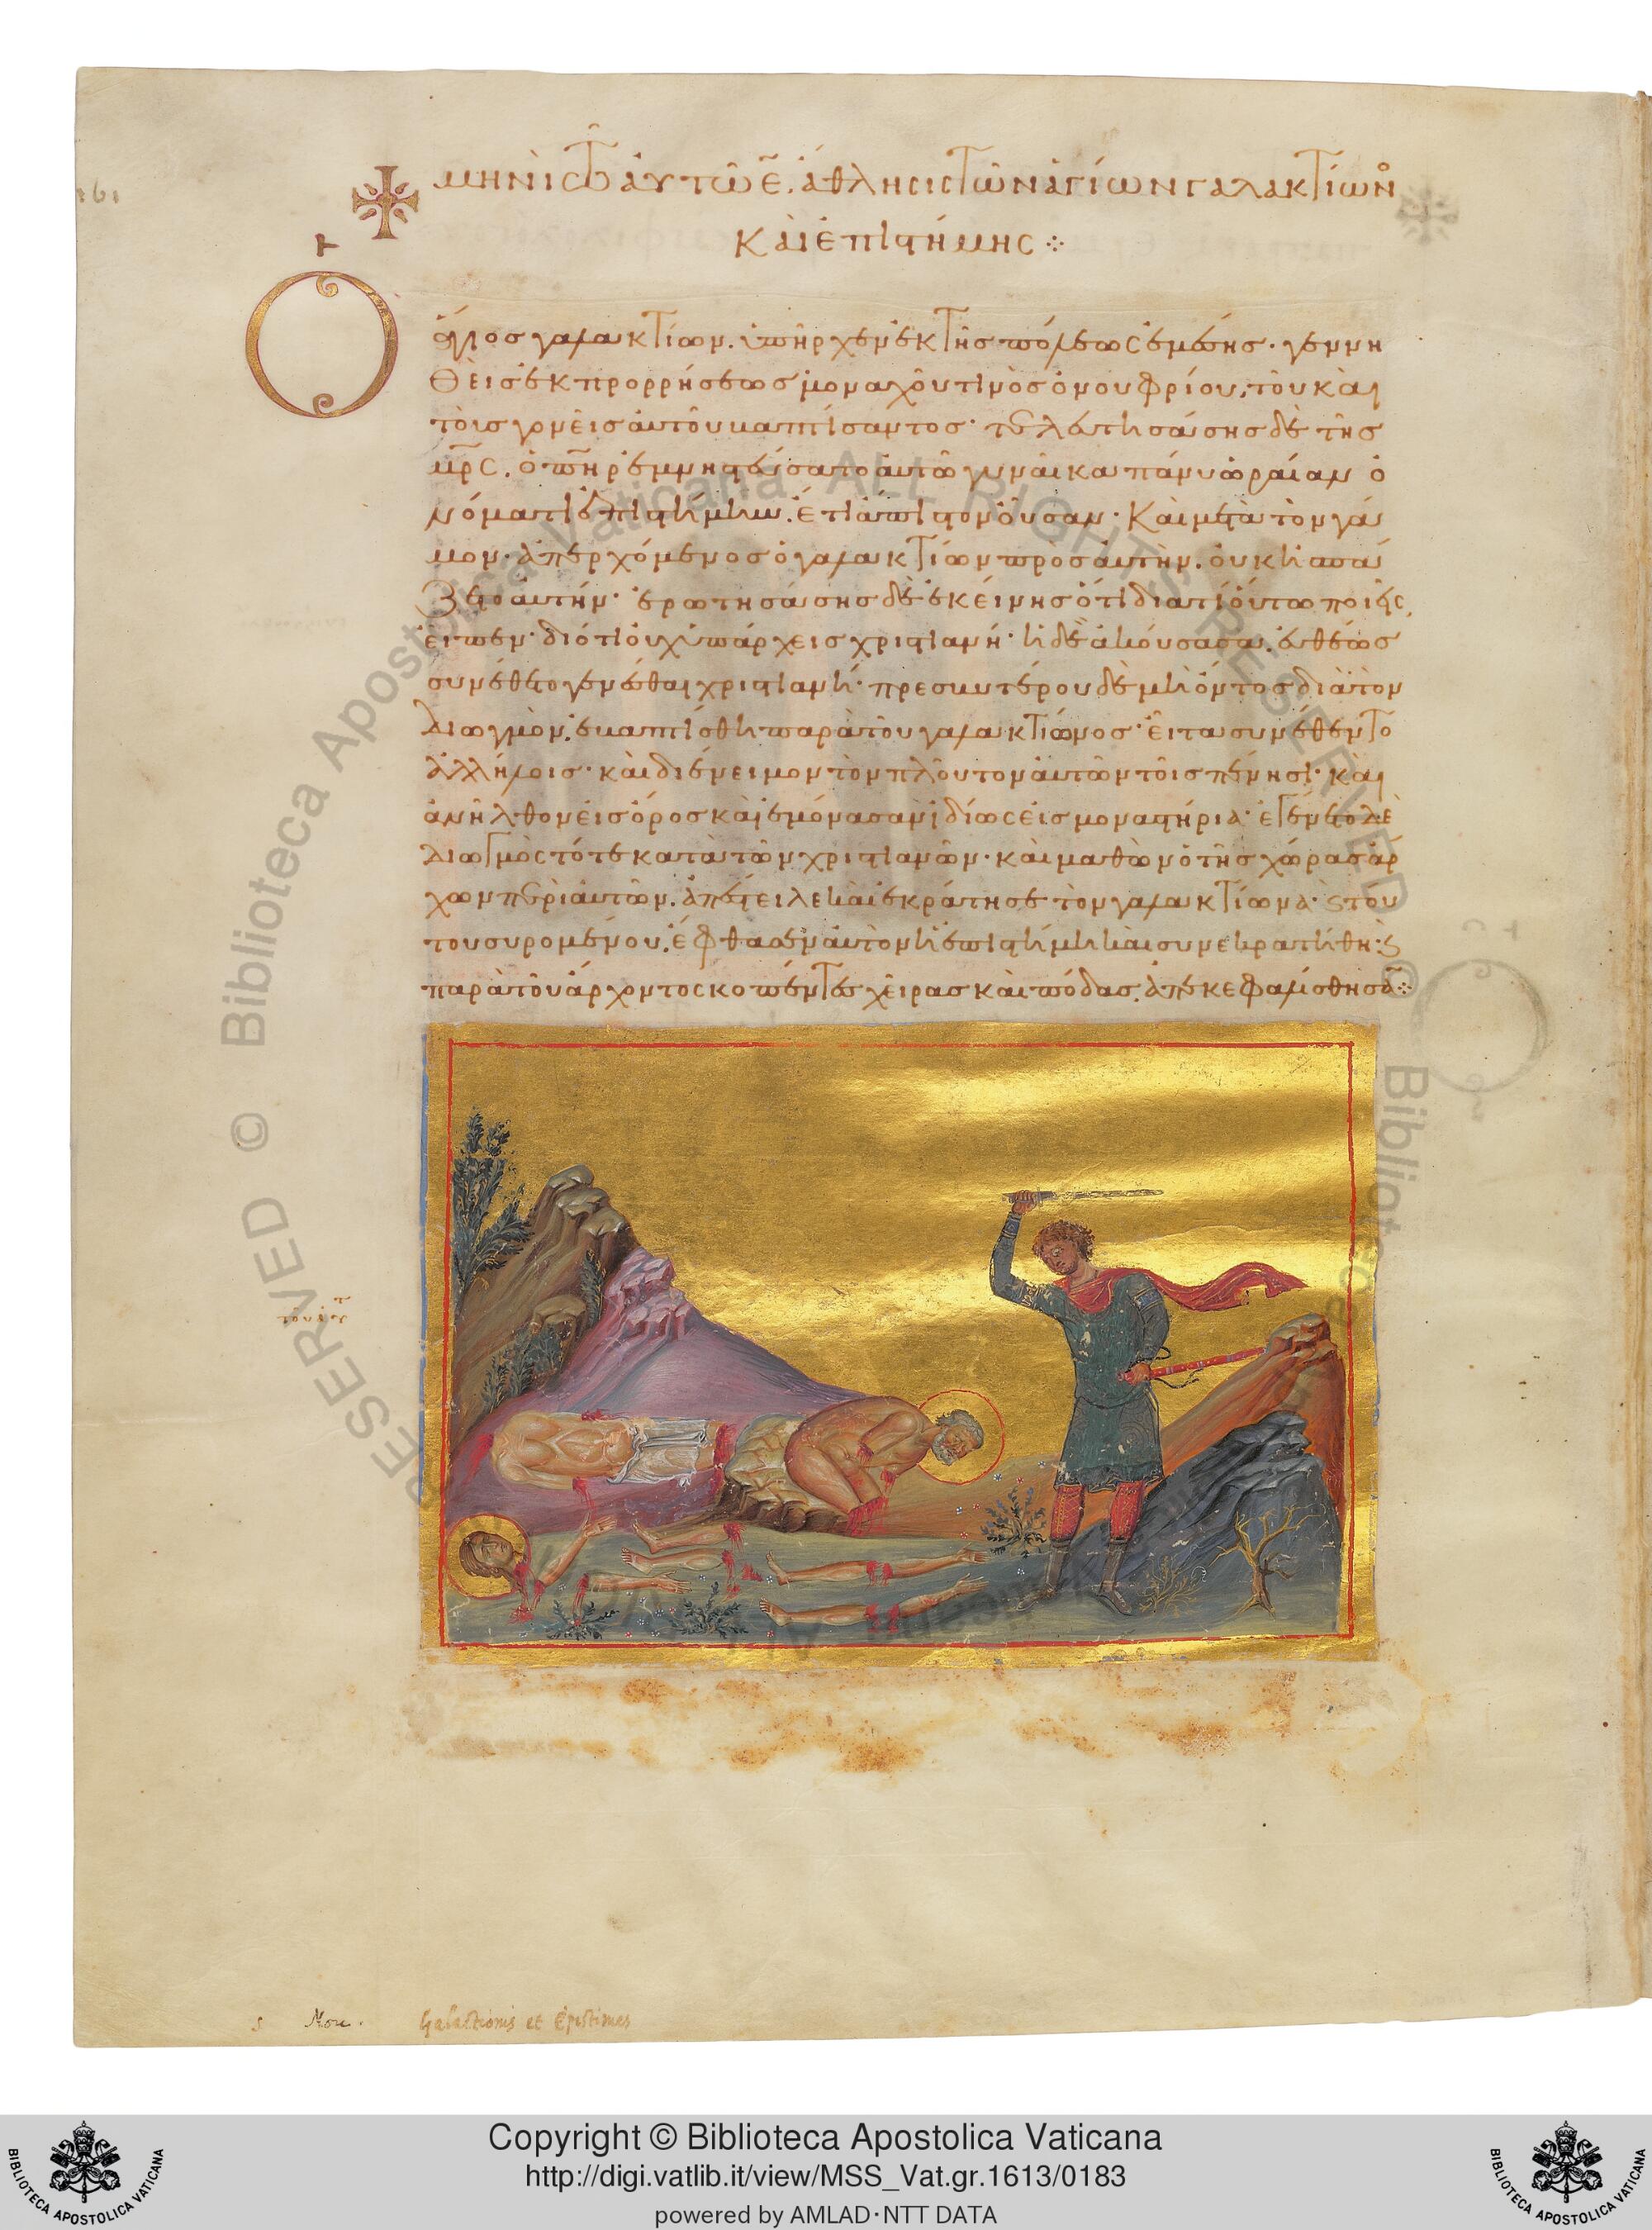 161
μηνὶ τῷ αὐτῷ ε̄. ἄθλησις τῶν ἁγίων γαλακτίωνο
καὶ ἐπιστήμης ⁘
Ὁ
ἅγιος γαλακτίων. ὑπῆρχεν ἐκ τῆς πόλεως ἐμέσης· γεννη
θεὶς ἐκ προρρήσεως μοναχοῦ τινὸς ὀνουφρίου, τοῦ καὶ
τοῖς γονεῖς αὐτοῦ βαπτίσαντος· τελευτησάσης δὲ τῆς
μρ̄ς. ὁ πηρ ἐμνηστεύσατο αὐτῶ γυναῖκα πάνυ ὡραίαν ὀ
νόματι ἐπιστήμην. ἔτι ἀπιστον οὖσαν· καὶ μετὰ τὸν γά
μον· ἀπερχόμενος ὁ γαλακτίων πρὸς αὐτὴν. οὐκ ἠσπά
ζετο αὐτήν· ἐρωτησάσης δὲ ἐκείνης ὅτι διατί οὕτω ποιεῖς,
εἶπεν· διότι οὐχ ὑπάρχεις χριστιανή· ἡ δὲ ἀκούσασα. εὐθέως
συνέθετο γενέσθαι χριστιανή· πρεσβυτέρου δὲ μὴ ὄντος διὰ τὸν
διωγμὸν. ἐβαπτίσθη παρὰ τοῦ γαλακτίωνος· εἶτα συνέθεντο
ἀλλήλοις· καὶ διένειμον τὸν πλοῦτον αὐτῶν τοῖς πένησι· καὶ
ἀνῆλθον εἰς ὄρος καὶ ἐμόνασαν ἰδίως εἰς μοναστήρια· ἐγένετο δὲ
διωγμὸς τότε κατὰ τῶν χριστιανῶν· καὶ μαθὼν ὁ τῆς χώρας ἄρ
χων περὶ αὐτῶν. ἀπέστειλε καὶ ἐκράτησε τὸν γαλακτίωνα· ϛ τού
του συρομένου. ἔφθασεν αὐτὸν ἡ ἐπιστήμη καὶ συνεκρατήθη· ϛ
παρὰ τοῦ ἄρχοντος κοπέντες χεῖρας καὶ πόδας. ἀπεκεφαλίσθησᾱ ⁘
5 Nou. Galactionis et Epistimes
Copyright © Biblioteca Apostolica Vaticana
http://digi.vatlib.it/view/MSS_Vat.gr.1613/0183
powered by AMLAD·NTT DATA
BIBLIOTECA APOSTOLICA VATICANA
BIBLIOTECA APOSTOLICA VATICANA